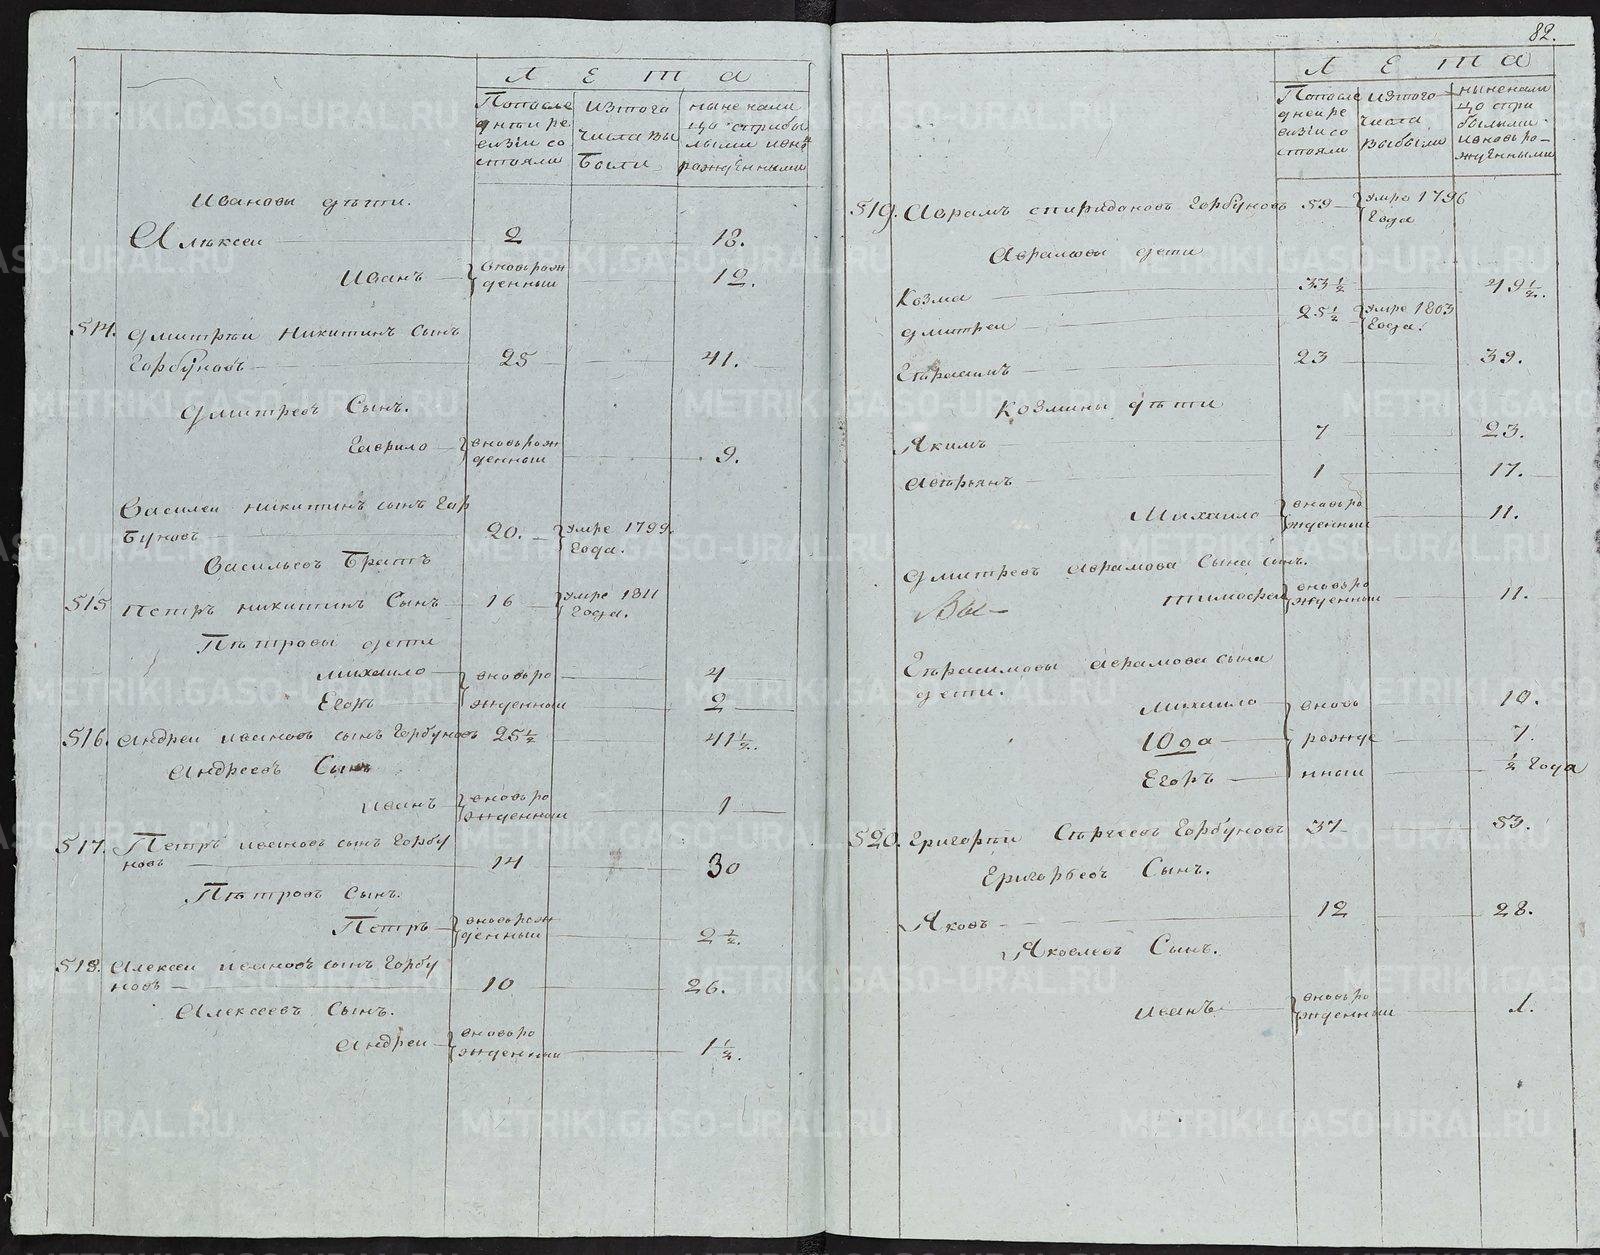 Л Е Т А
По после
дней ре
визiи со
стояли
из того
числа вы
были
ныне нали
цо с прибы
лыми и внов
рожденными
Ивановы дѣти.
Алѣксеи 2 18.
Иванъ вновь рож
денныи 12.
514. Дмитрѣи Никитинъ Сынъ
Горбуновъ 25 41.
Дмитревъ Сынъ.
Гаврило вновь рож
денныи 9.
Василеи Никитинъ сынъ Гор
буновъ 20. умре 1799.
Года.
Васильевъ Братъ
515 Петръ Никитинъ Сынъ 16 умре 1811
Года.
Пѣтровы дети
Михаило вновь ро 4
Егоръ жденныи 2
516. Андреи Ивановъ сынъ Горбуновъ 25½ 41½.
Андреевъ Сынъ
Иванъ вновь ро
жденныи 1
517. Петръ Ивановъ сынъ Горбу
новъ 14 30
Пѣтровъ Сынъ.
Петръ вновь рож
денныи 2½.
518. Алексеи Ивановъ сынъ Горбу
новъ 10 26.
Алексеевъ Сынъ.
Андреи вновь ро
жденныи 1½.
82.
Л Е Т А
По после
дней ре
визiи со
стояли
из того
числа
выбыли
ныне нали
цо с при
былыми
и вновь ро-
жденными
519. Аврамъ Спиридоновъ Горбуновъ 59 умре 1796
Года
Аврамовы дети
Козма 33½ 49½.
Дмитреи 25½ умре 1803
Года.
Гѣрасимъ 23 39.
Козмины дѣти
Якимъ 7 23.
Авѣрьянъ 1 17.
Михаило вновь ро
жденныи 11.
Дмитревъ Аврамова Сына сынъ.
Тимофеи вновь ро
жденныи 11.
Гѣрасимовы Аврамова сына
дети.
Михаило вновь 10.
Юда рожде 7.
Егоръ нныи ½ Года
520. Григорѣи Сѣргѣевъ Горбуновъ 37 53.
Григорьевъ Сынъ.
Яковъ 12 28.
Яковлевъ Сынъ.
Иванъ вновь ро
жденныи 1.
METRIKI.GASO-URAL.RU